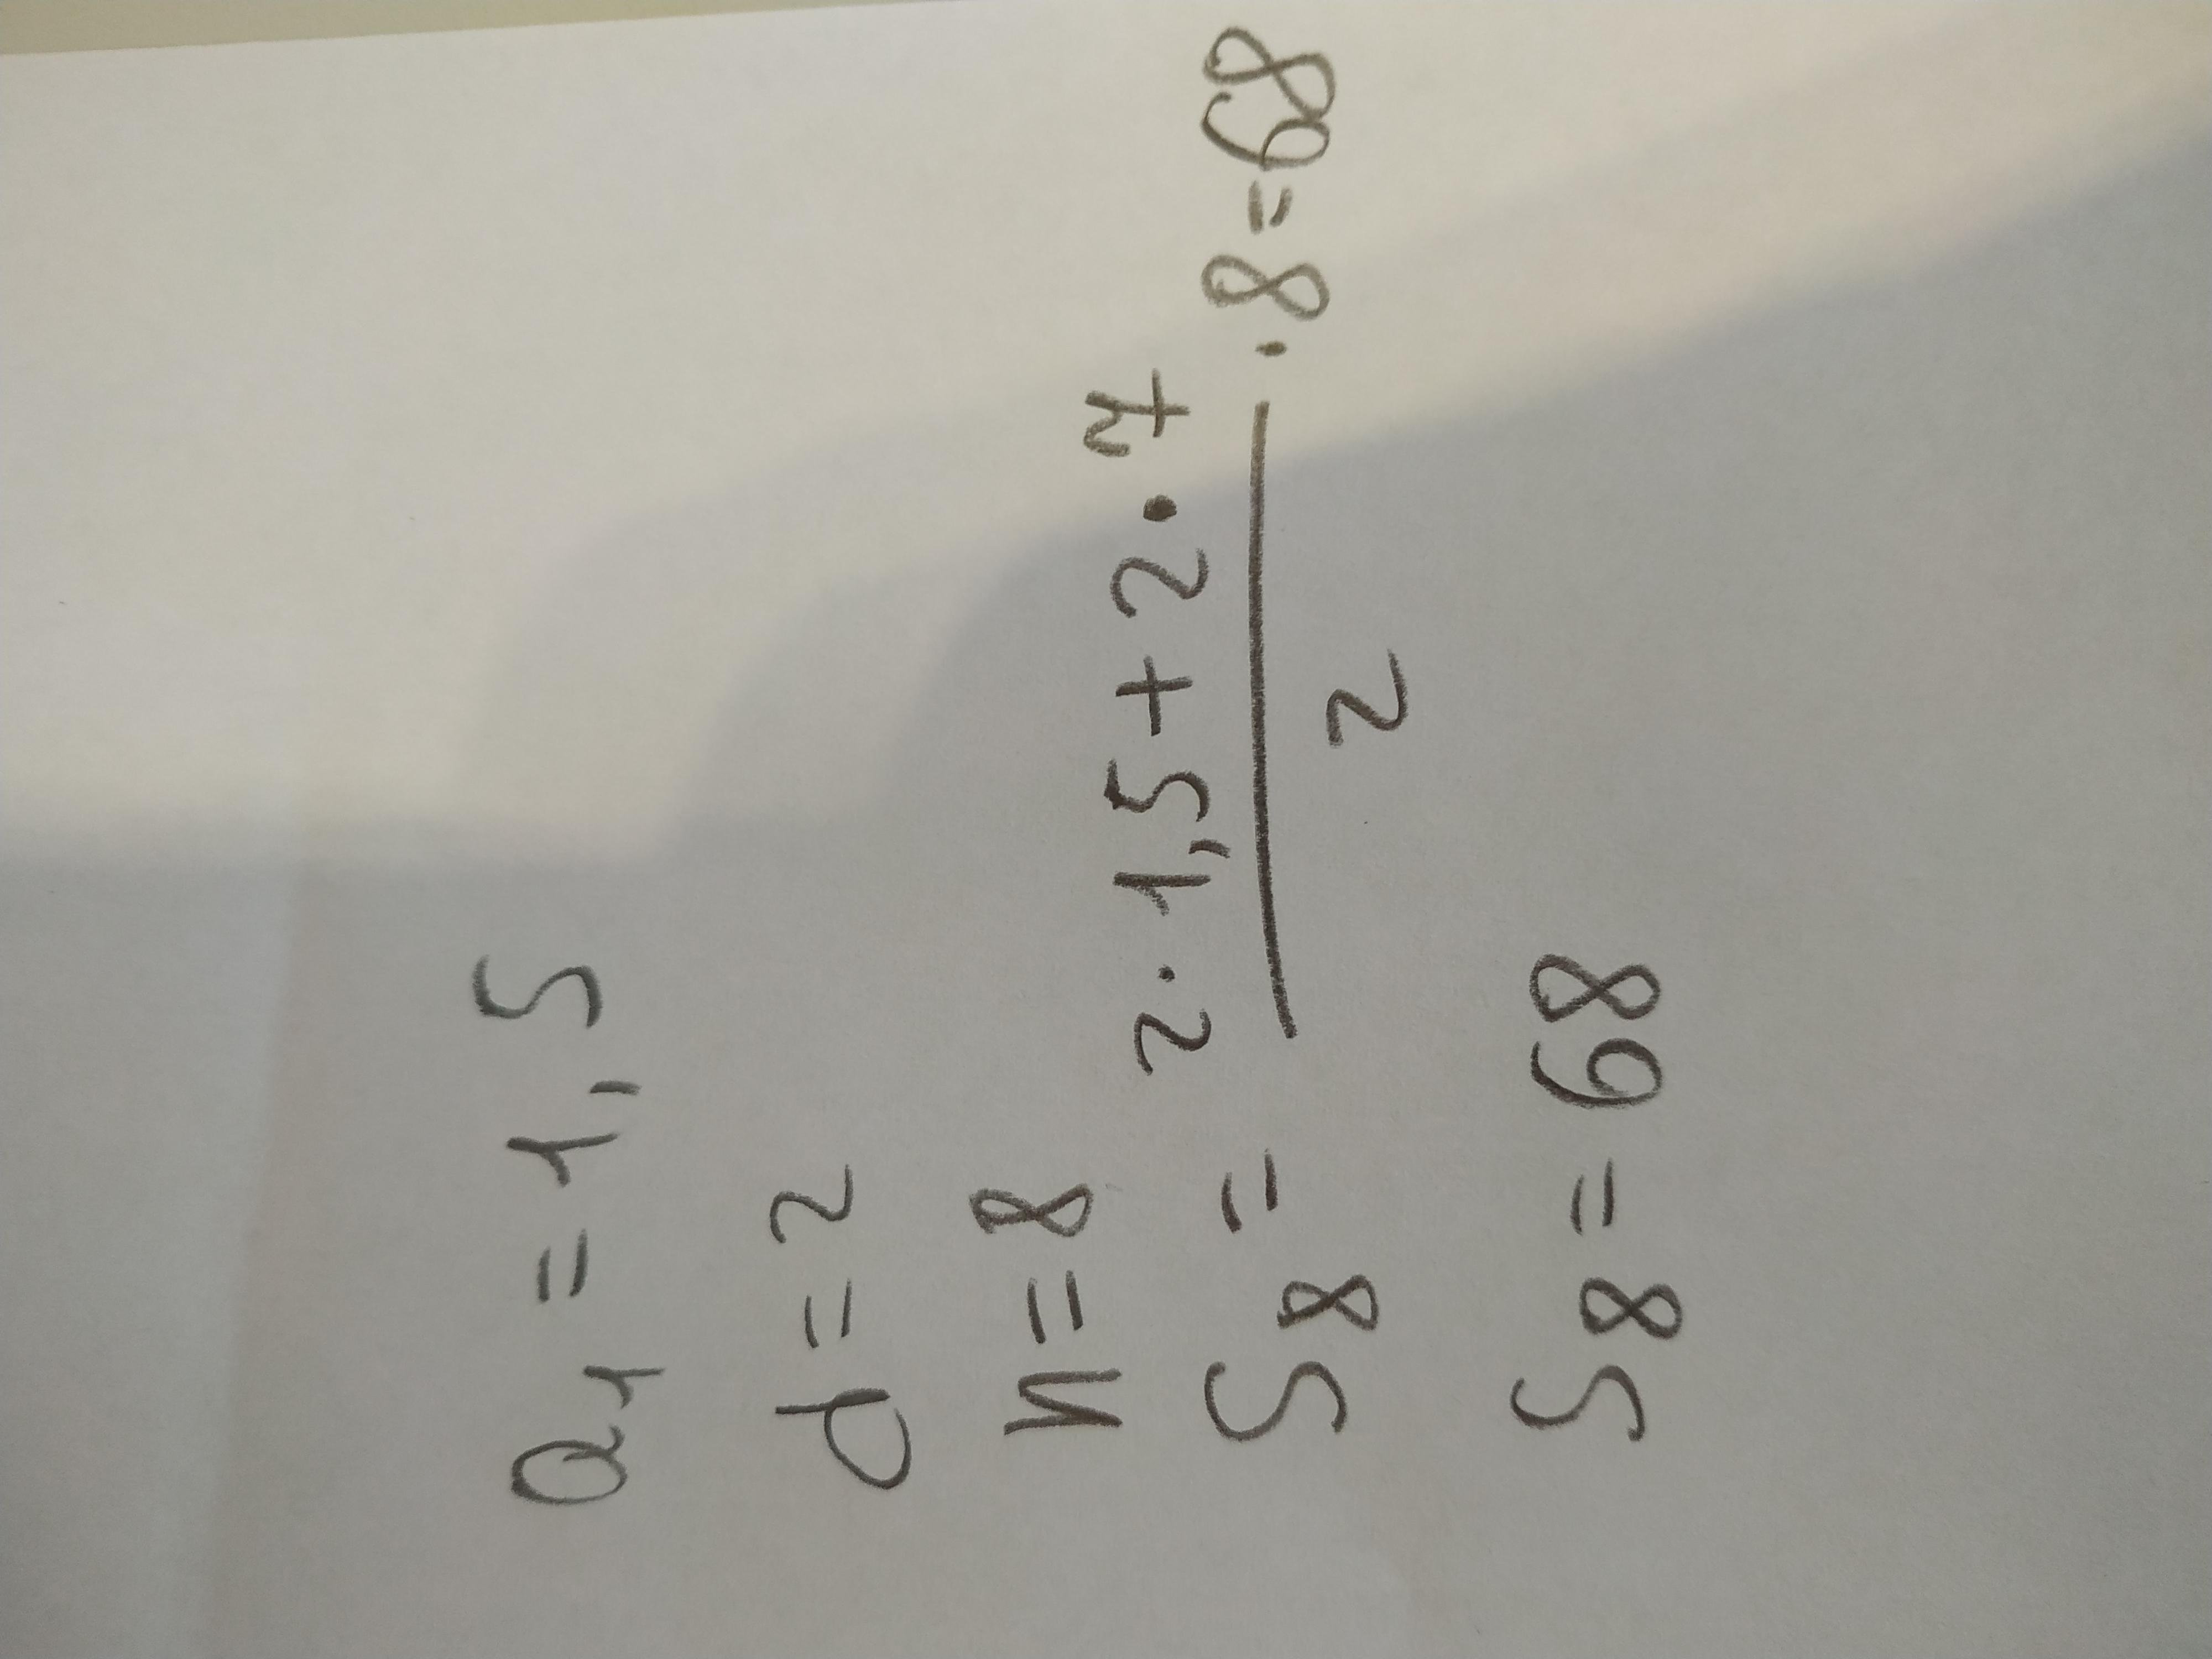 a₁ = 1,5
d = 2
n = 8
S₈ = (2 · 1,5 + 2 · 7)/2 · 8 = 68
S₈ = 68